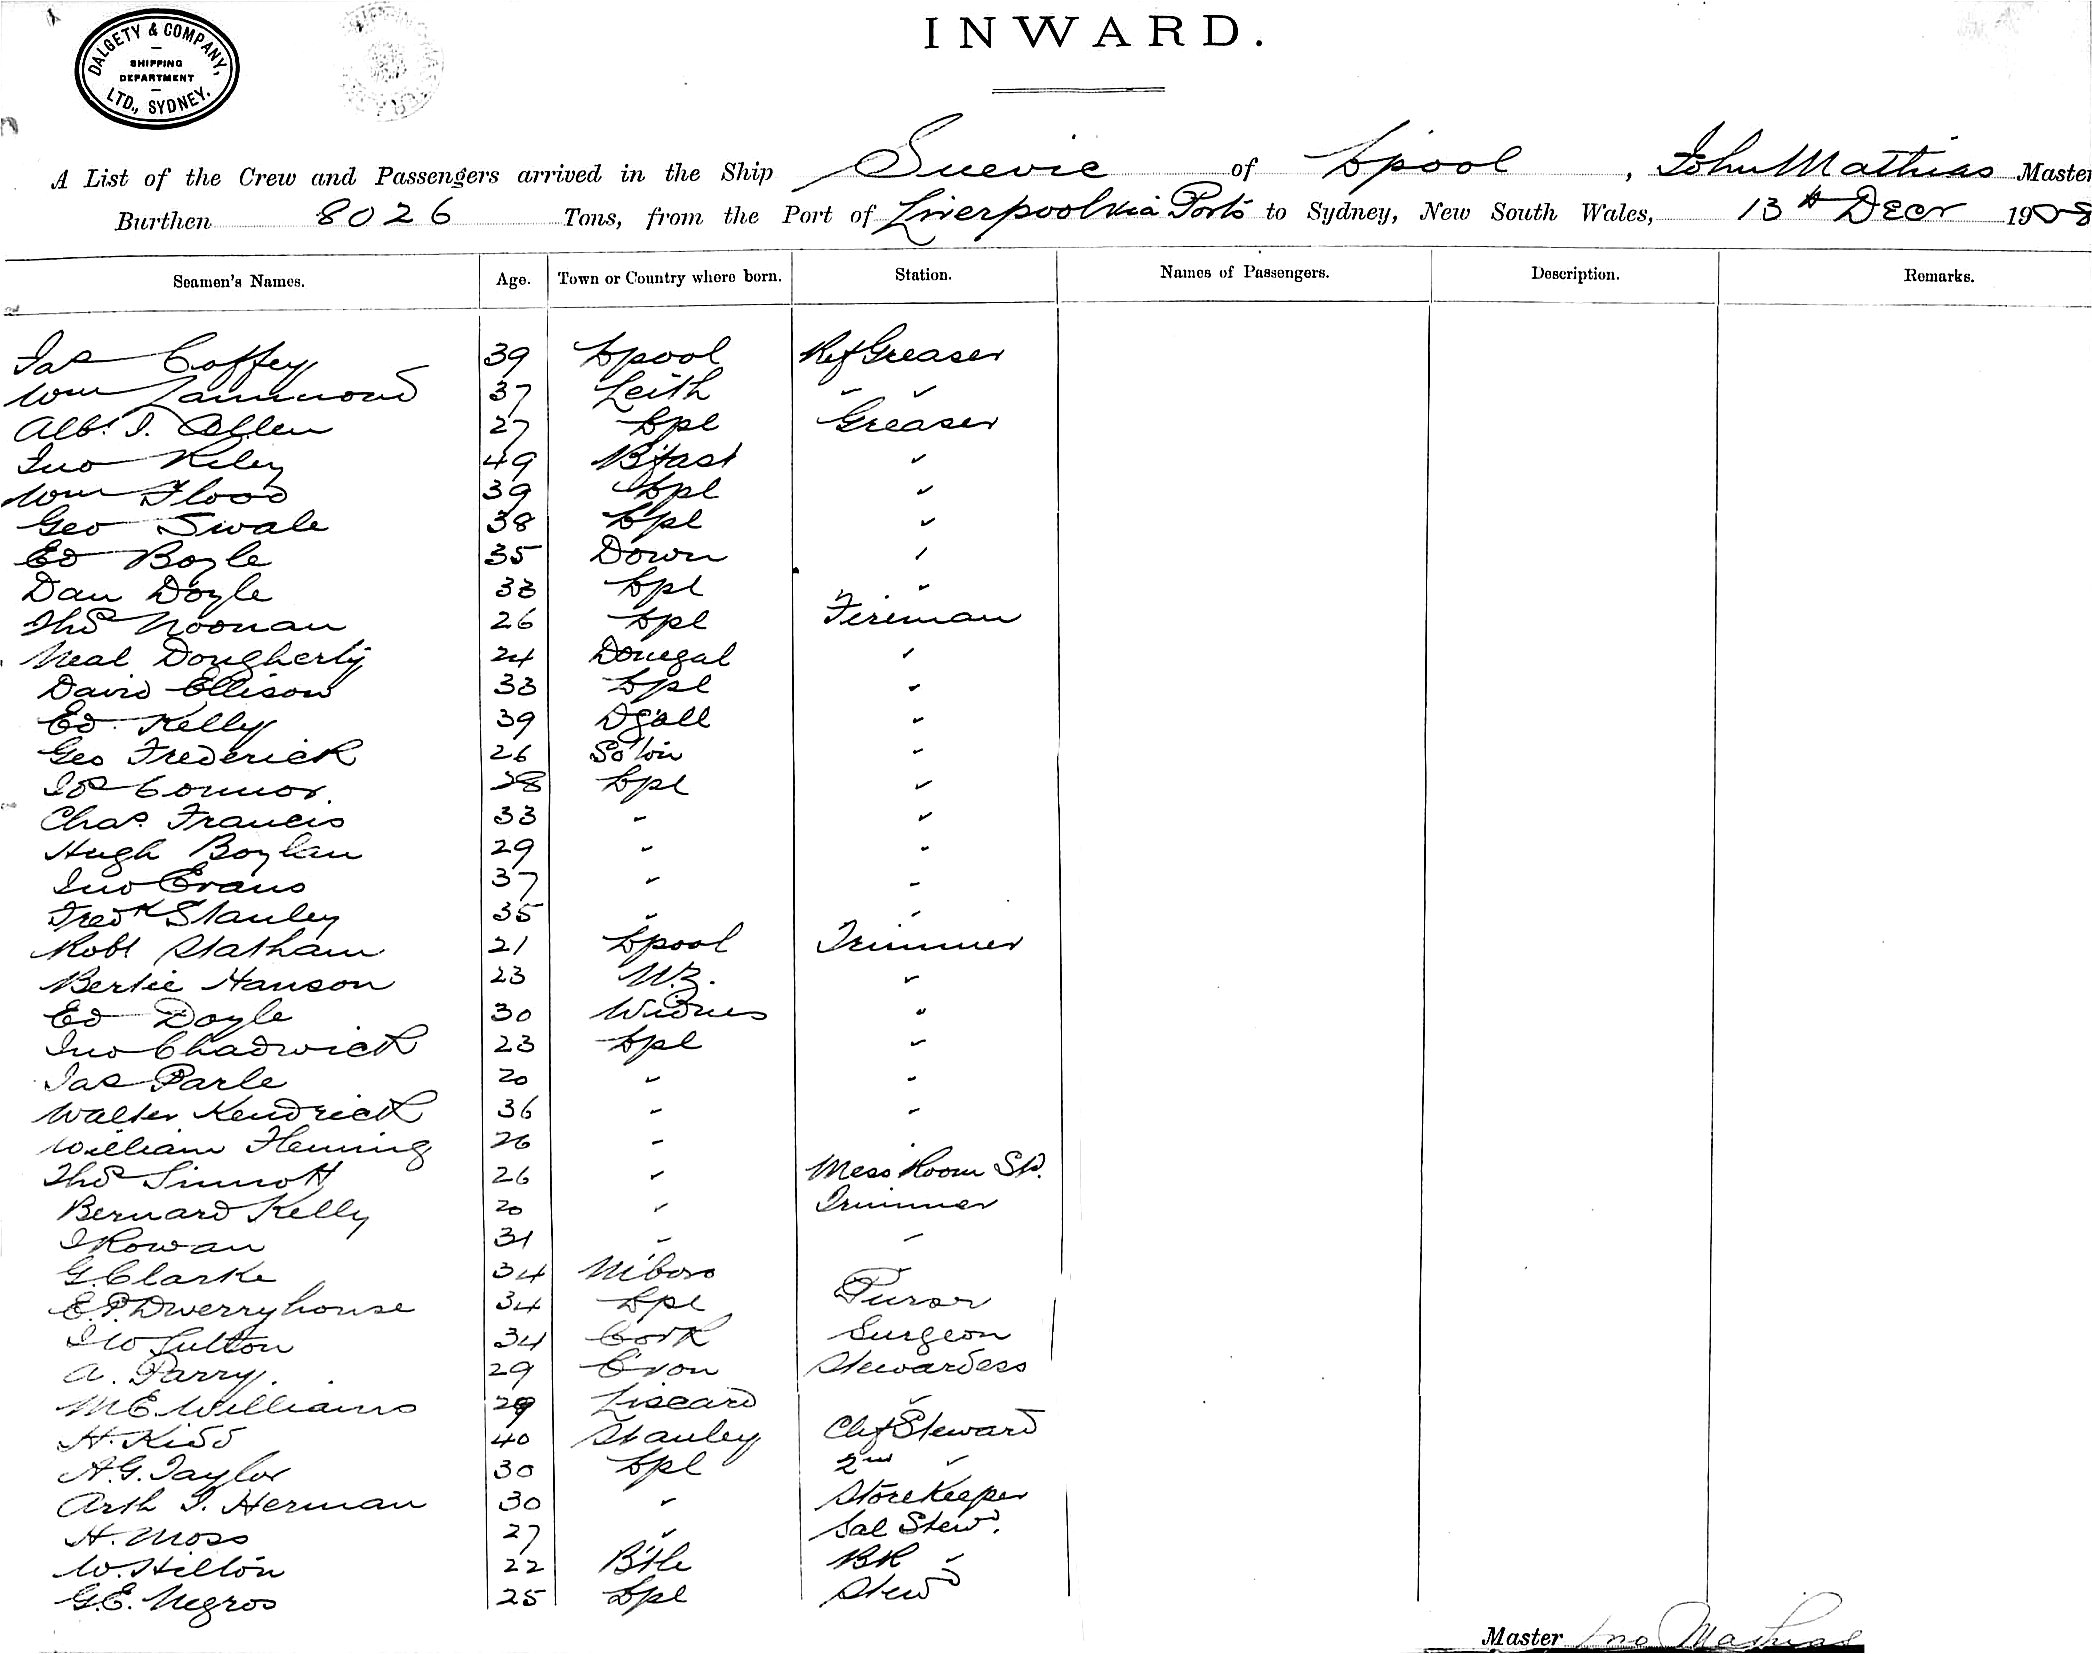 DALGETY & COMPANY, LTD., SYDNEY.
SHIPPING
DEPARTMENT
INWARD.
A List of the Crew and Passengers arrived in the Ship Suevic of Lpool, John Mathias Master
Burthen 8026 Tons, from the Port of Liverpool via Ports to Sydney, New South Wales, 13th Decr 1908
Seamen's Names. Age. Town or Country where born. Station. Names of Passengers. Description. Remarks.
Jas Coffey 39 Lpool Ref Greaser
Wm 37 Leith " "
Albt. J. Allen 27 Lpl Greaser
Jno Riley 49 B'fast "
Wm Flood 39 Lpl "
Geo Swale 38 Lpl "
Ed Boyle 35 Down "
Dan Doyle 33 Lpl "
Thos Noonan 26 Lpl Fireman
Neal Dougherty 24 Donegal "
David Ellison 33 Lpl "
Ed. Kelly 39 D'gall "
Geo Frederick 26 "
Jos Connor. 28 Lpl "
Chas. Francis 33 " "
Hugh Boylan 29 " "
Jno Evans 37 " "
Fredk Stanley 35 " "
Robt Statham 21 Lpool Trimmer
Bertie Hanson 23 N.Z. "
Ed Doyle 30 Widnes "
Jno Chadwick 23 Lpl "
Jas Parle 20 " "
Walter Kendrick 36 " "
William Fleming 26 " "
Thos Sinnott 26 " Mess Room Std.
Bernard Kelly 20 " Trimmer
J Rowan 31 " "
G. Clarke 34 M'boro
E.P. Dwerryhouse 34 Lpl Purser
J W Sutton 34 Cork Surgeon
A. Parry. 29 C'von Stewardess
M E Williams 29 Liscard "
H. Kidd 40 Stanley Chf Steward
A.G. Taylor 30 Lpl 2nd "
Arth J. Herman 30 " Storekeeper
H. Moss 27 " Sal Stewd.
W. Hilton 22 B'tle BR "
G.E. Negros 25 Lpl Stewd
Master Jno Mathias